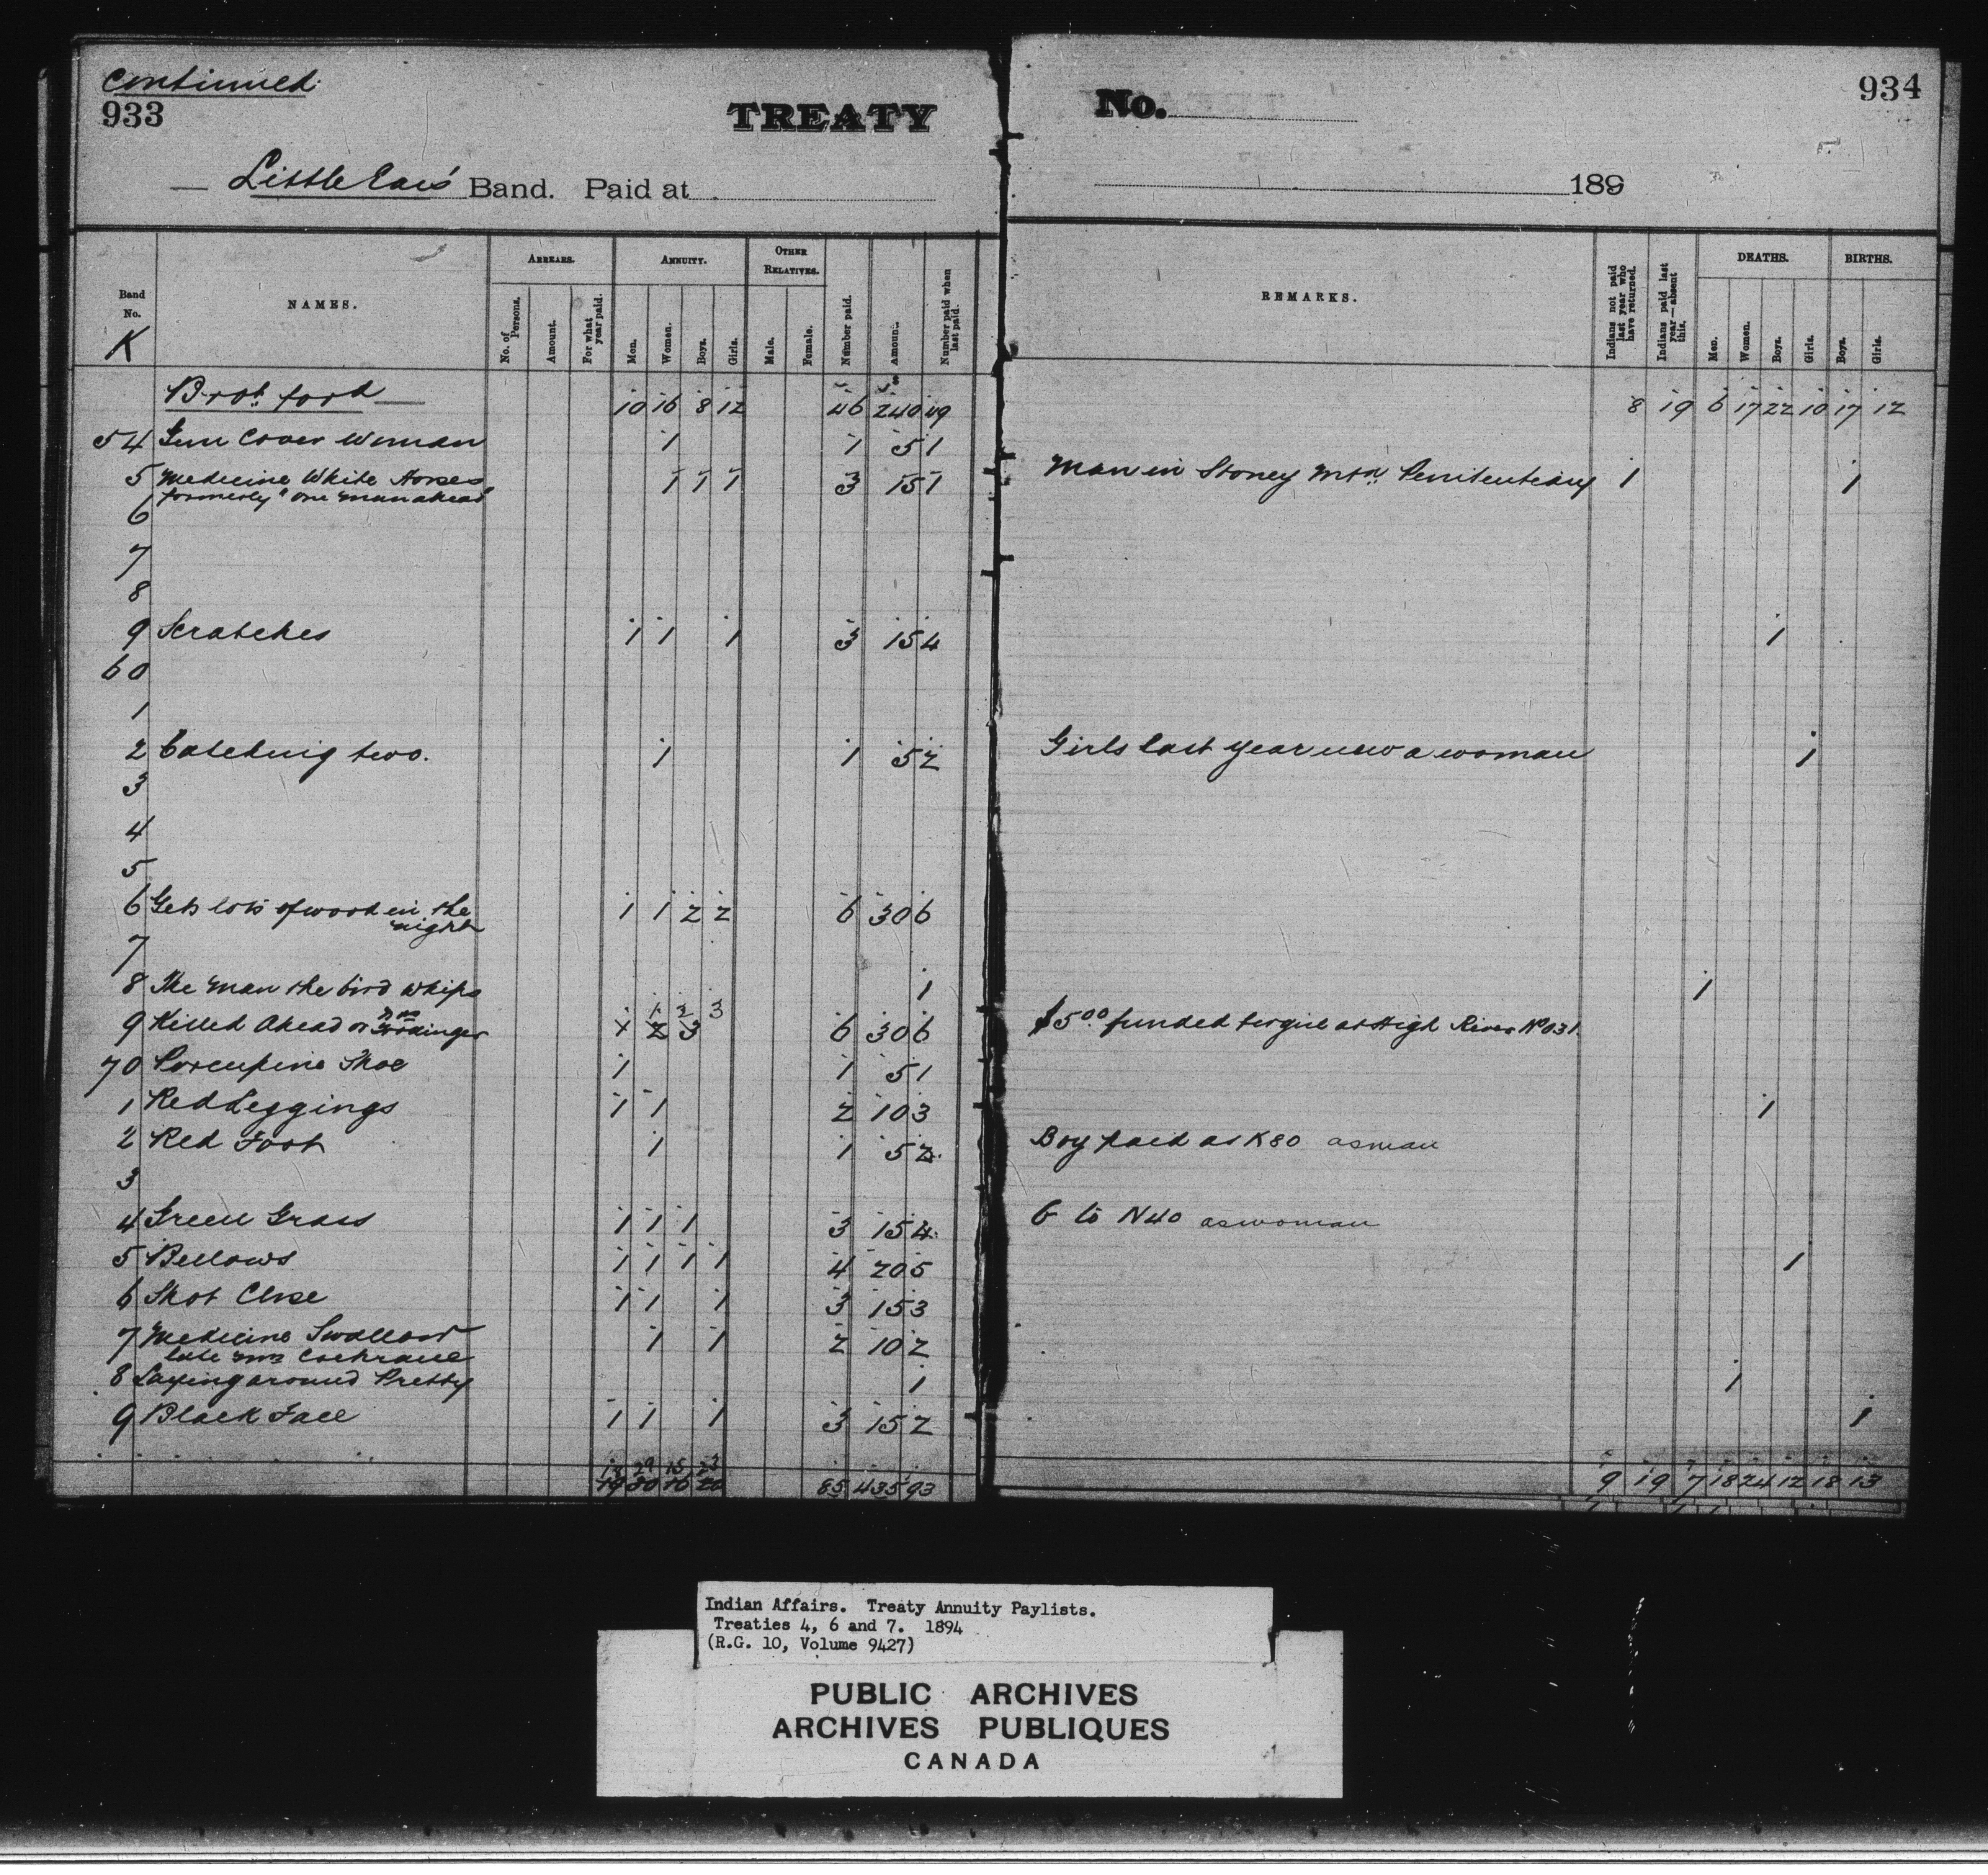 continued
933
TREATY No. 934
Little Ears Band. Paid at 189
Band No. NAMES. ARREARS. ANNUITY. OTHER RELATIVES. Number paid. Amount. Number paid when last paid. REMARKS. Indians not paid last year who have returned. Indians paid last year—absent this. DEATHS. BIRTHS.
No. of Persons. Amount. For what year paid. Men. Women. Boys. Girls. Male. Female. Men. Women. Boys. Girls. Boys. Girls.
K
Brot. ford 10 16 8 12 46 240 49 8 19 6 17 22 10 17 12
54 Gun Cover Woman 1 1 5 1
5 Medicine White Horses 1 1 1 3 15 1 Man in Stoney Mtn. Penitentiary 1 1
formerly "one man ahead"
6
7
8
9 Scratches 1 1 1 3 15 4 1
60
1
2 Catching two. 1 1 5 2 Girls last year now a woman 1
3
4
5
6 Gets lots of wood in the 1 1 2 2 6 30 6
night
7
8 The man the bird whips 1 1
9 Killed Ahead or 1 2 3 6 30 6 $5.00 funded for girl at High River No 31.
70 Porcupine Shoe 1 1 5 1
1 Red Leggings 1 1 2 10 3 1
2 Red Foot 1 1 5 2 Boy paid as K80 as man
3
4 Green Grass 1 1 1 3 15 4 G to N40 as woman
5 Bellows 1 1 1 1 4 20 5 1
6 Shot Close 1 1 1 3 15 3
7 Medicine Swallow 1 1 2 10 2
late Mrs Cochrane
8 Laying around Pretty 1 1
9 Black Face 1 1 1 3 15 2 1
18 29 15 23
19 30 16 20 85 435 93 9 19 7 18 24 12 18 13
Indian Affairs. Treaty Annuity Paylists.
Treaties 4, 6 and 7. 1894
(R.G. 10, Volume 9427)
PUBLIC ARCHIVES
ARCHIVES PUBLIQUES
CANADA